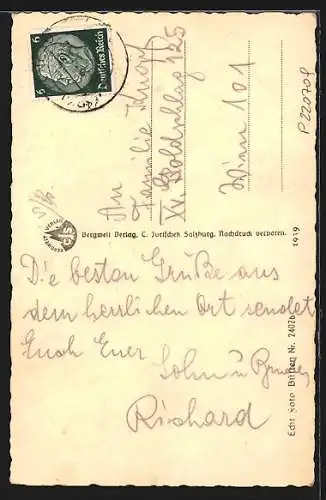 Die besten Grüße aus
dem herrlichen Ort sendet
Euch Euer Sohn u Bruder
Richard
An
Familie Knopf
XV. Goldschlag 125
Wien 101
Bergwelt Verlag, C. Jurischek Salzburg. Nachdruck verboten.
1939
Echt Foto
Nr. 2402b
P220708
Deutsches Reich
6
6